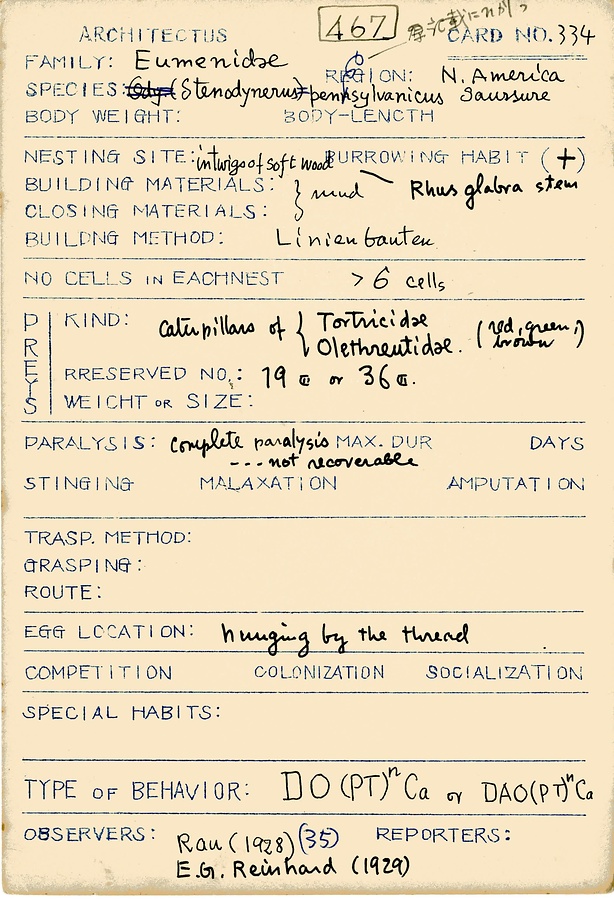 467
ARCHITECTUS CARD NO. 334
FAMILY: Eumenidae REGION: N. America
SPECIES: (Stenodynerus) pennsylvanicus Saussure
BODY WEIGHT: BODY-LENGTH
NESTING SITE: in twigs of soft wood BURROWING HABIT (+)
BUILDING MATERIALS: } mud Rhus glabra stem
CLOSING MATERIALS:
BUILDNG METHOD: Linienbauten
NO CELLS IN EACHNEST >6 cells
PREYS
KIND: Caterpillars of { Tortricidae (red, green,
Olethreutidae. brown)
RRESERVED NO.: 19 or 36
WEIGHT OR SIZE:
PARALYSIS: complete paralysis MAX. DUR DAYS
---not recoverable
STINGING MALAXATION AMPUTATION
TRASP. METHOD:
GRASPING:
ROUTE:
EGG LOCATION: hunging by the thread
COMPETITION COLONIZATION SOCIALIZATION
SPECIAL HABITS:
TYPE OF BEHAVIOR: DO(PT)ⁿCa or DAO(PT)ⁿCa
OBSERVERS: Rau (1928) (35) REPORTERS:
E.G. Reinhard (1929)